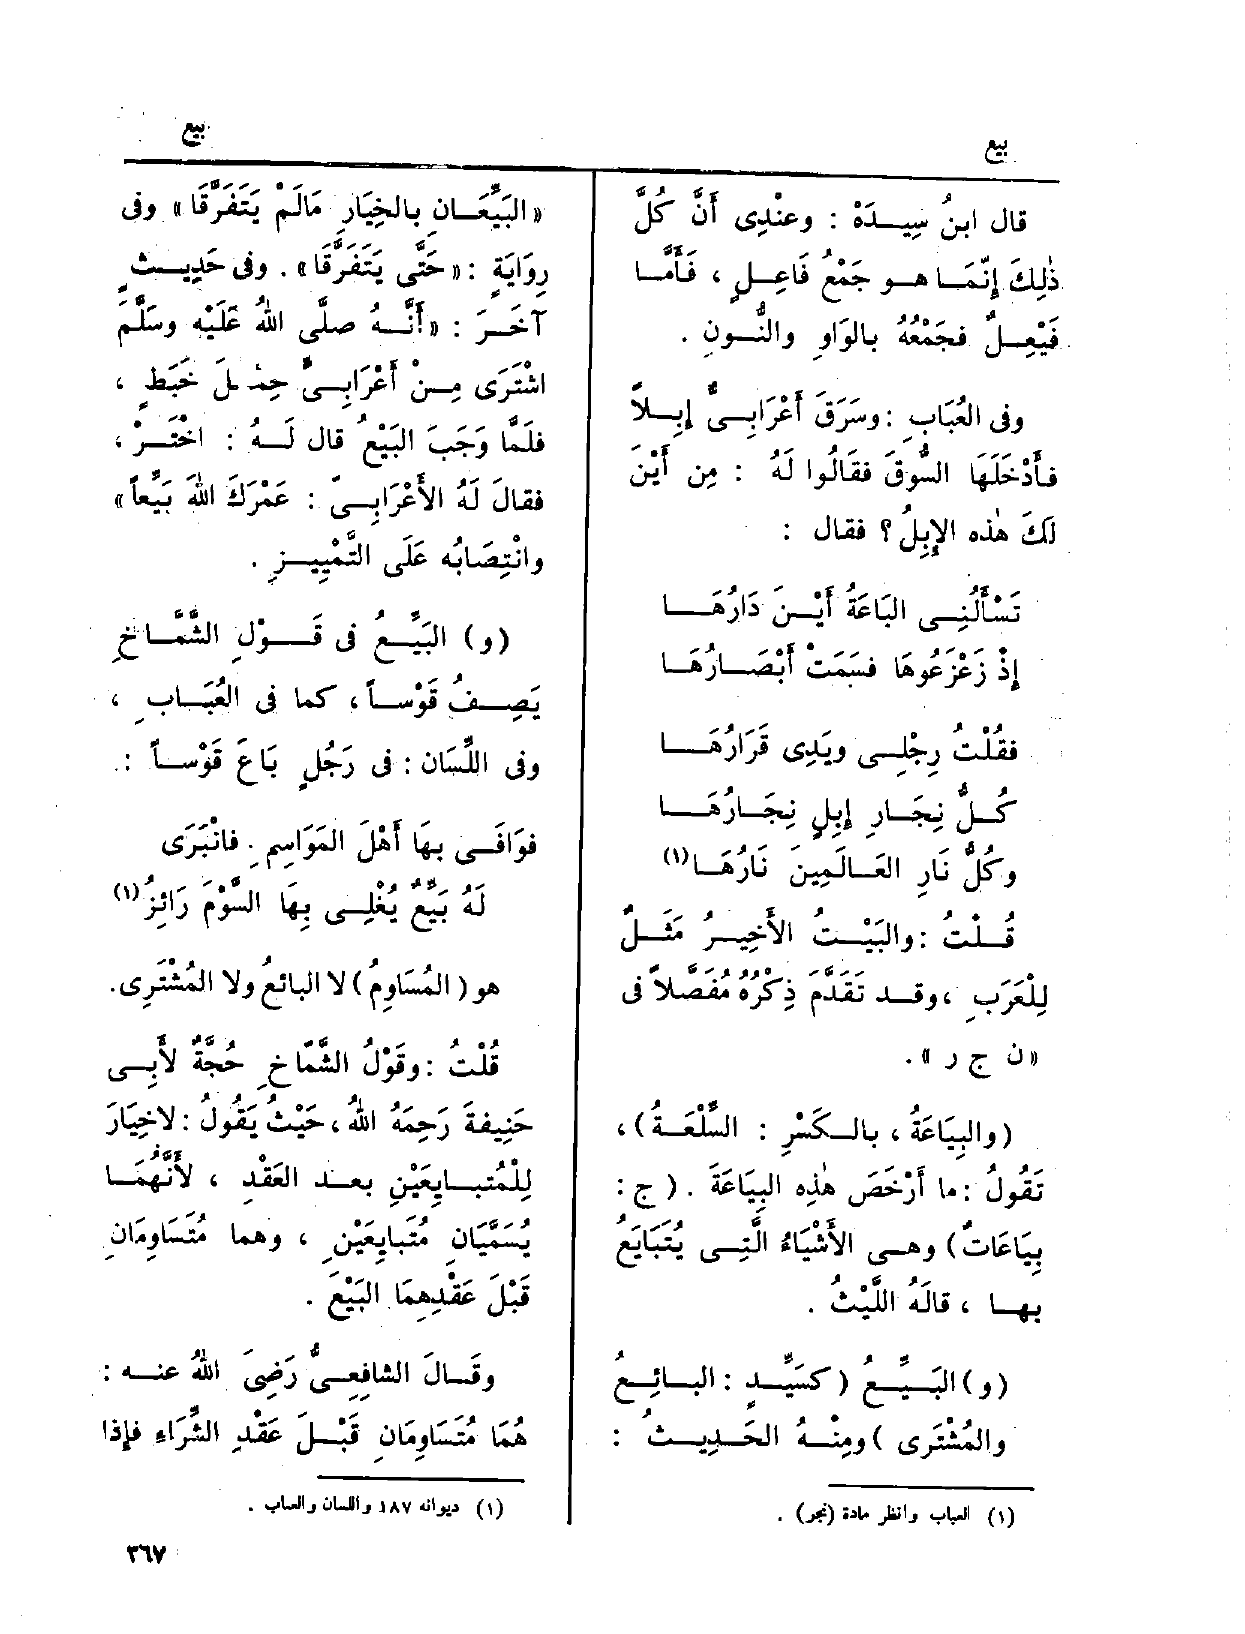 بيع
قال ابنُ سِيدَهْ : وعنْدِى أَنَّ كُلَّ
ذٰلِكَ إِنَّمَا هو جَمْعُ فَاعِلٍ ، فَأَمَّا
فَيْعِلٌ فجَمْعُهُ بالوَاوِ والنُّونِ .
وفى العُبَابِ : وسَرَقَ أَعْرَابِىٌّ إِبِلاً
فأَدْخَلَهَا السُّوقَ فقَالُوا لَهُ : مِن أَيْنَ
لَكَ هٰذه الإِبِلُ ؟ فقال :
تَسْأَلُنِى البَاعَةُ أَيْنَ دَارُهَا
إِذْ زَعْزَعُوهَا فسَمَتْ أَبْصَارُهَا
فقُلْتُ رِجْلِى ويَدِى قَرَارُهَا
كُلُّ نِجَارِ إِبِلٍ نِجَارُهَا
وكُلُّ نَارِ العَالَمِينَ نَارُهَا (١)
قُلْتُ : والبَيْتُ الأَخِيرُ مَثَلٌ
لِلْعَرَبِ ، وقد تَقَدَّمَ ذِكْرُهُ مُفَصَّلاً فى
« ن ج ر » .
(والبِيَاعَةُ ، بالكَسْرِ : السِّلْعَةُ) ،
تَقُولُ : ما أَرْخَصَ هٰذِه البِيَاعَةَ . (ج :
بِيَاعَاتٌ) وهى الأَشْيَاءُ الَّتِى يُتَبَايَعُ
بها ، قالَهُ اللَّيْثُ .
(و) البَيِّعُ (كسَيِّدٍ : البائِعُ
والمُشْتَرِى) ومِنْهُ الحَدِيثُ :
(١) العباب وانظر مادة (نجر) .
بيع
« البَيِّعَانِ بالخِيَارِ مَالَمْ يَتَفَرَّقَا » وفى
رِوَايَةٍ : « حَتَّى يَتَفَرَّقَا » . وفى حَدِيثٍ
آخَرَ : « أَنَّهُ صلَّى اللهُ عَلَيْه وسَلَّمَ
اشْتَرَى مِنْ أَعْرَابِىٍّ حِمْلَ خَبَطٍ ،
فلَمَّا وَجَبَ البَيْعُ قال لَهُ : اخْتَرْ ،
فقالَ لَهُ الأَعْرَابِىّ : عَمْرَكَ اللهَ بَيِّعاً »
وانْتِصَابُه عَلَى التَّمْيِيزِ .
(و) البَيِّعُ فى قَوْلِ الشَّمَّاخِ
يَصِفُ قَوْساً ، كما فى العُبَابِ ،
وفى اللِّسَان : فى رَجُلٍ بَاعَ قَوْساً :
فوَافَى بِهَا أَهْلَ المَوَاسِمِ . فانْبَرَى
لَهُ بَيِّعٌ يُغْلِى بِهَا السَّوْمَ رَائِزُ (١)
هو (المُسَاوِمُ) لا البائعُ ولا المُشْتَرِى .
قُلْتُ : وقَوْلُ الشَّمّاخِ حُجَّةٌ لأَبِى
حَنِيفَةَ رَحِمَهُ اللهُ ، حَيْثُ يَقُولُ : لاخِيَارَ
لِلْمُتبايِعَيْنِ بعد العَقْدِ ، لأَنَّهُمَا
يُسَمَّيَانِ مُتَبايِعَيْنِ ، وهما مُتَساوِمَانِ
قَبْلَ عَقْدِهِمَا البَيْعَ .
وقَالَ الشافِعِىُّ رَضِىَ اللهُ عنه :
هُمَا مُتَساوِمَانِ قَبْلَ عَقْدِ الشِّرَاءِ فإِذا
(١) ديوانه ١٨٧ واللسان والعباب .
٣٦٧